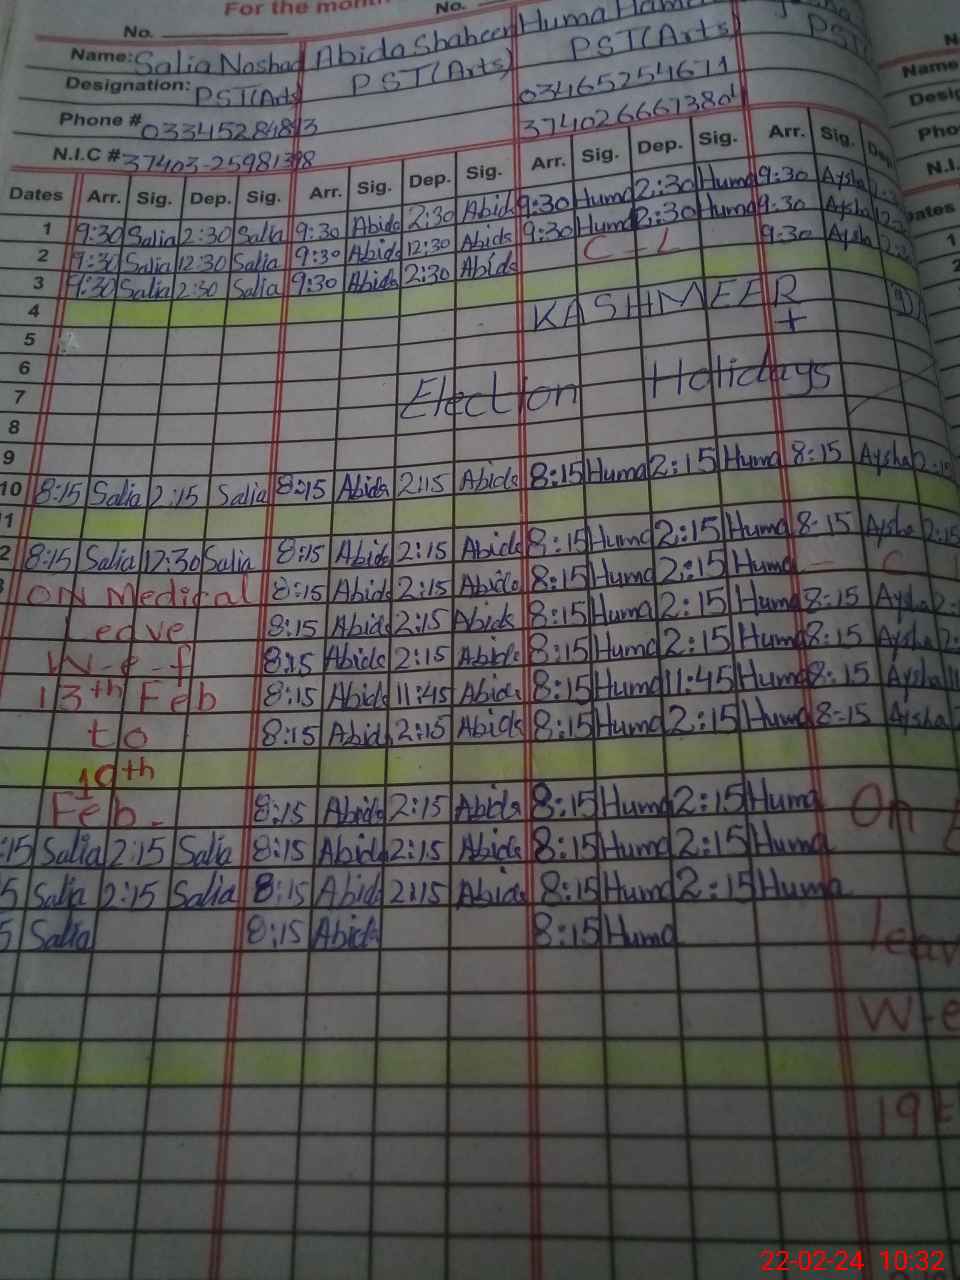 For the month
No.
No.
Name: Salia Noshad Abida Shaheen Huma
Designation: PST(Arts) PST(Arts) PST(Arts) PST
Phone # 03465254671
N.I.C # 37403-2598
Dates Arr. Sig. Dep. Sig. Arr. Sig. Dep. Sig. Arr. Sig. Dep. Sig. Arr. Sig. Dep
1 9:30 Salia 2:30 Salia 9:30 Abida 2:30 Abida 9:30 Huma 2:30 Huma 9:30 Aysha
2 9:30 Salia 12:30 Salia 9:30 Abida 12:30 Abida 9:30 Huma 2:30 Huma 9:30 Aysha
3 9:30 Salia 2:30 Salia 9:30 Abida 2:30 Abida C-L 9:30 Aysha
4
5 KASHMEER
6 +
7 Election Holidays
8
9
10 8:15 Salia 2:15 Salia 8:15 Abida 2:15 Abida 8:15 Huma 2:15 Huma 8:15 Aysha 2:15
11
2 8:15 Salia 12:30 Salia 8:15 Abida 2:15 Abida 8:15 Huma 2:15 Huma 8:15 Aysha 2:15
ON Medical 8:15 Abida 2:15 Abida 8:15 Huma 2:15 Huma - C
Leave 8:15 Abida 2:15 Abida 8:15 Huma 2:15 Huma 8:15 Aysha 2:
W-e-f 8:15 Abida 2:15 Abida 8:15 Huma 2:15 Huma 8:15 Aysha 2:
13th Feb 8:15 Abida 11:45 Abida 8:15 Huma 11:45 Huma 8:15 Aysha 11
to 8:15 Abida 2:15 Abida 8:15 Huma 2:15 Huma 8:15 Aysha 2
19th
Feb. 8:15 Abida 2:15 Abida 8:15 Huma 2:15 Huma On
:15 Salia 2:15 Salia 8:15 Abida 2:15 Abida 8:15 Huma 2:15 Huma
5 Salia 2:15 Salia 8:15 Abida 2:15 Abida 8:15 Huma 2:15 Huma
5 Salia 8:15 Abida 8:15 Huma leav
W-e
19t
22-02-24 10:32